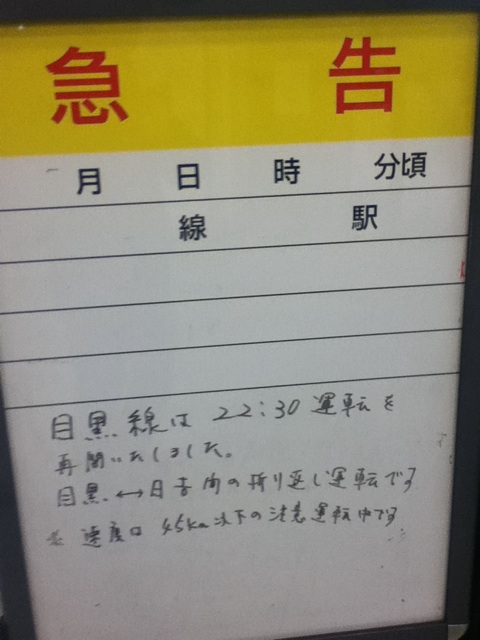 急 告
月 日 時 分頃
線 駅
目黒線は 22:30 運転を
再開いたしました。
目黒↔日吉間の折り返し運転です
※ 速度は 45km以下の注意運転中です